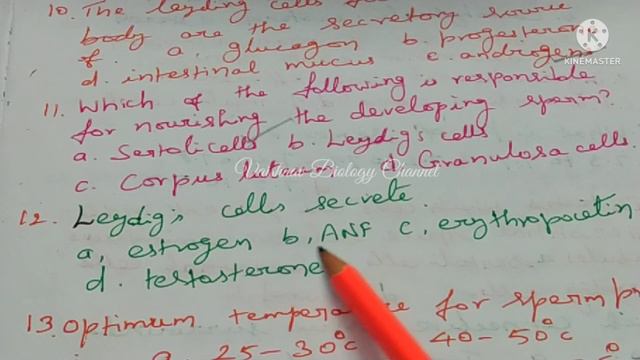 10. The leydig cells
body are the secretory source
of. a. glucagon b. progesterone
d. intestinal mucus c. androgens
KINEMASTER
11. Which of the following is responsible
for nourishing the developing sperm?
a. Sertoli cells b. Leydig's cells
c. Corpus d. Granulosa cells.
Biology Channel
12. Leydig's cells secrete.
a, estrogen b, ANF c, erythropoietin
d. testosterone
13. Optimum temperature for sperm
a. 25-30°c 40-50°c